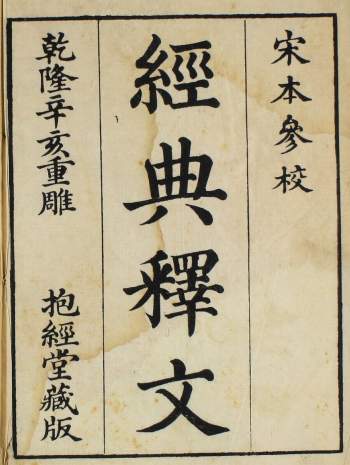 宋本參校
經典釋文
乾隆辛亥重雕 抱經堂藏版